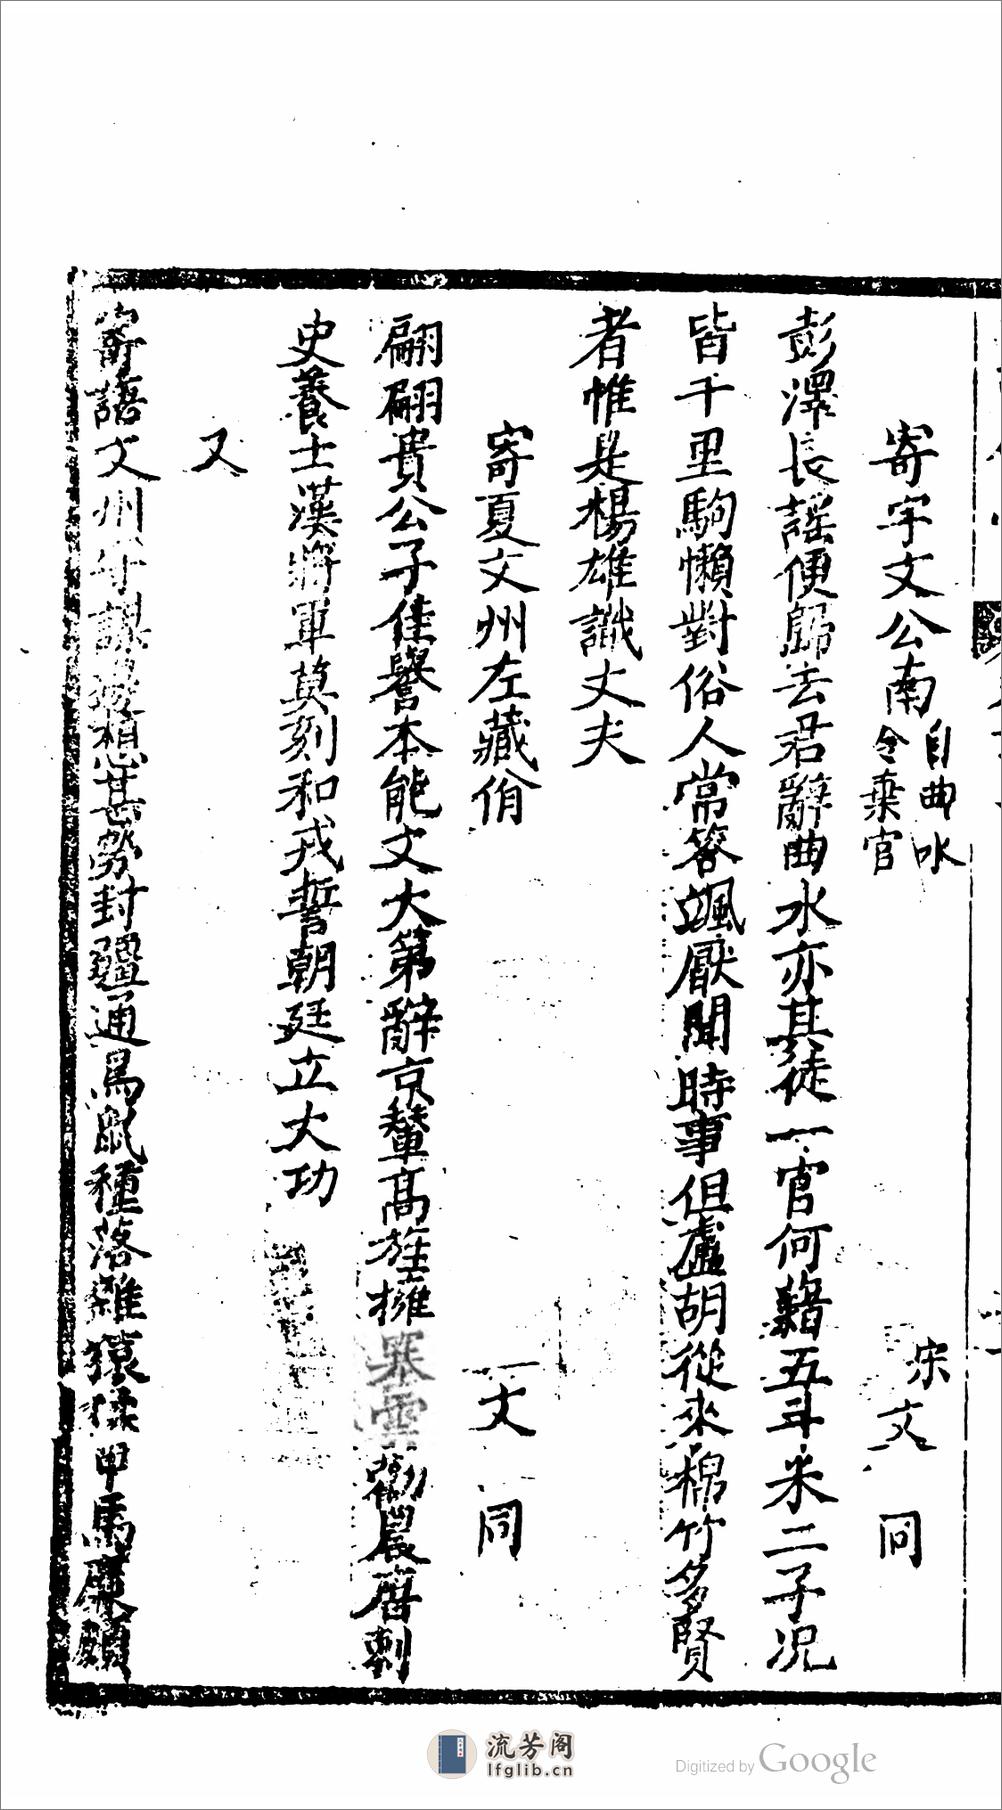 寄宇文公南 自曲水令棄官 宋文同
彭澤長謠便歸去君辭曲水亦其徒一官何藉五斗米二子況
皆千里駒懶對俗人當答颯厭聞時事但盧胡從來穄竹多賢
者惟是楊雄識丈夫
寄夏文州左藏佾 文同
翩翩貴公子佳譽本能文大第辭京輦高旌擁塞雲勸農唐刺
史養士漢將軍莫刻和戎誓朝廷立大功
又
寄語文州守誤邊想甚勞封疆通鳥鼠種落雜猿猱甲馬
流芳阁
lfglib.cn
Digitized by Google